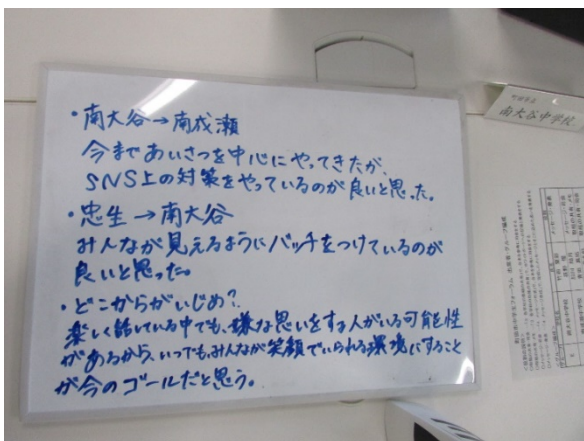 ・南大谷→南成瀬
今まであいさつを中心にやってきたが、
SNS上の対策をやっているのが良いと思った。
・忠生→南大谷
みんなが見えるようにバッチをつけているのが
良いと思った。
・どこからがいじめ?
楽しく話している中でも、嫌な思いをする人がいる可能性
があるから、いつでもみんなが笑顔でいられる環境にすること
が今のゴールだと思う。
南大谷中学校